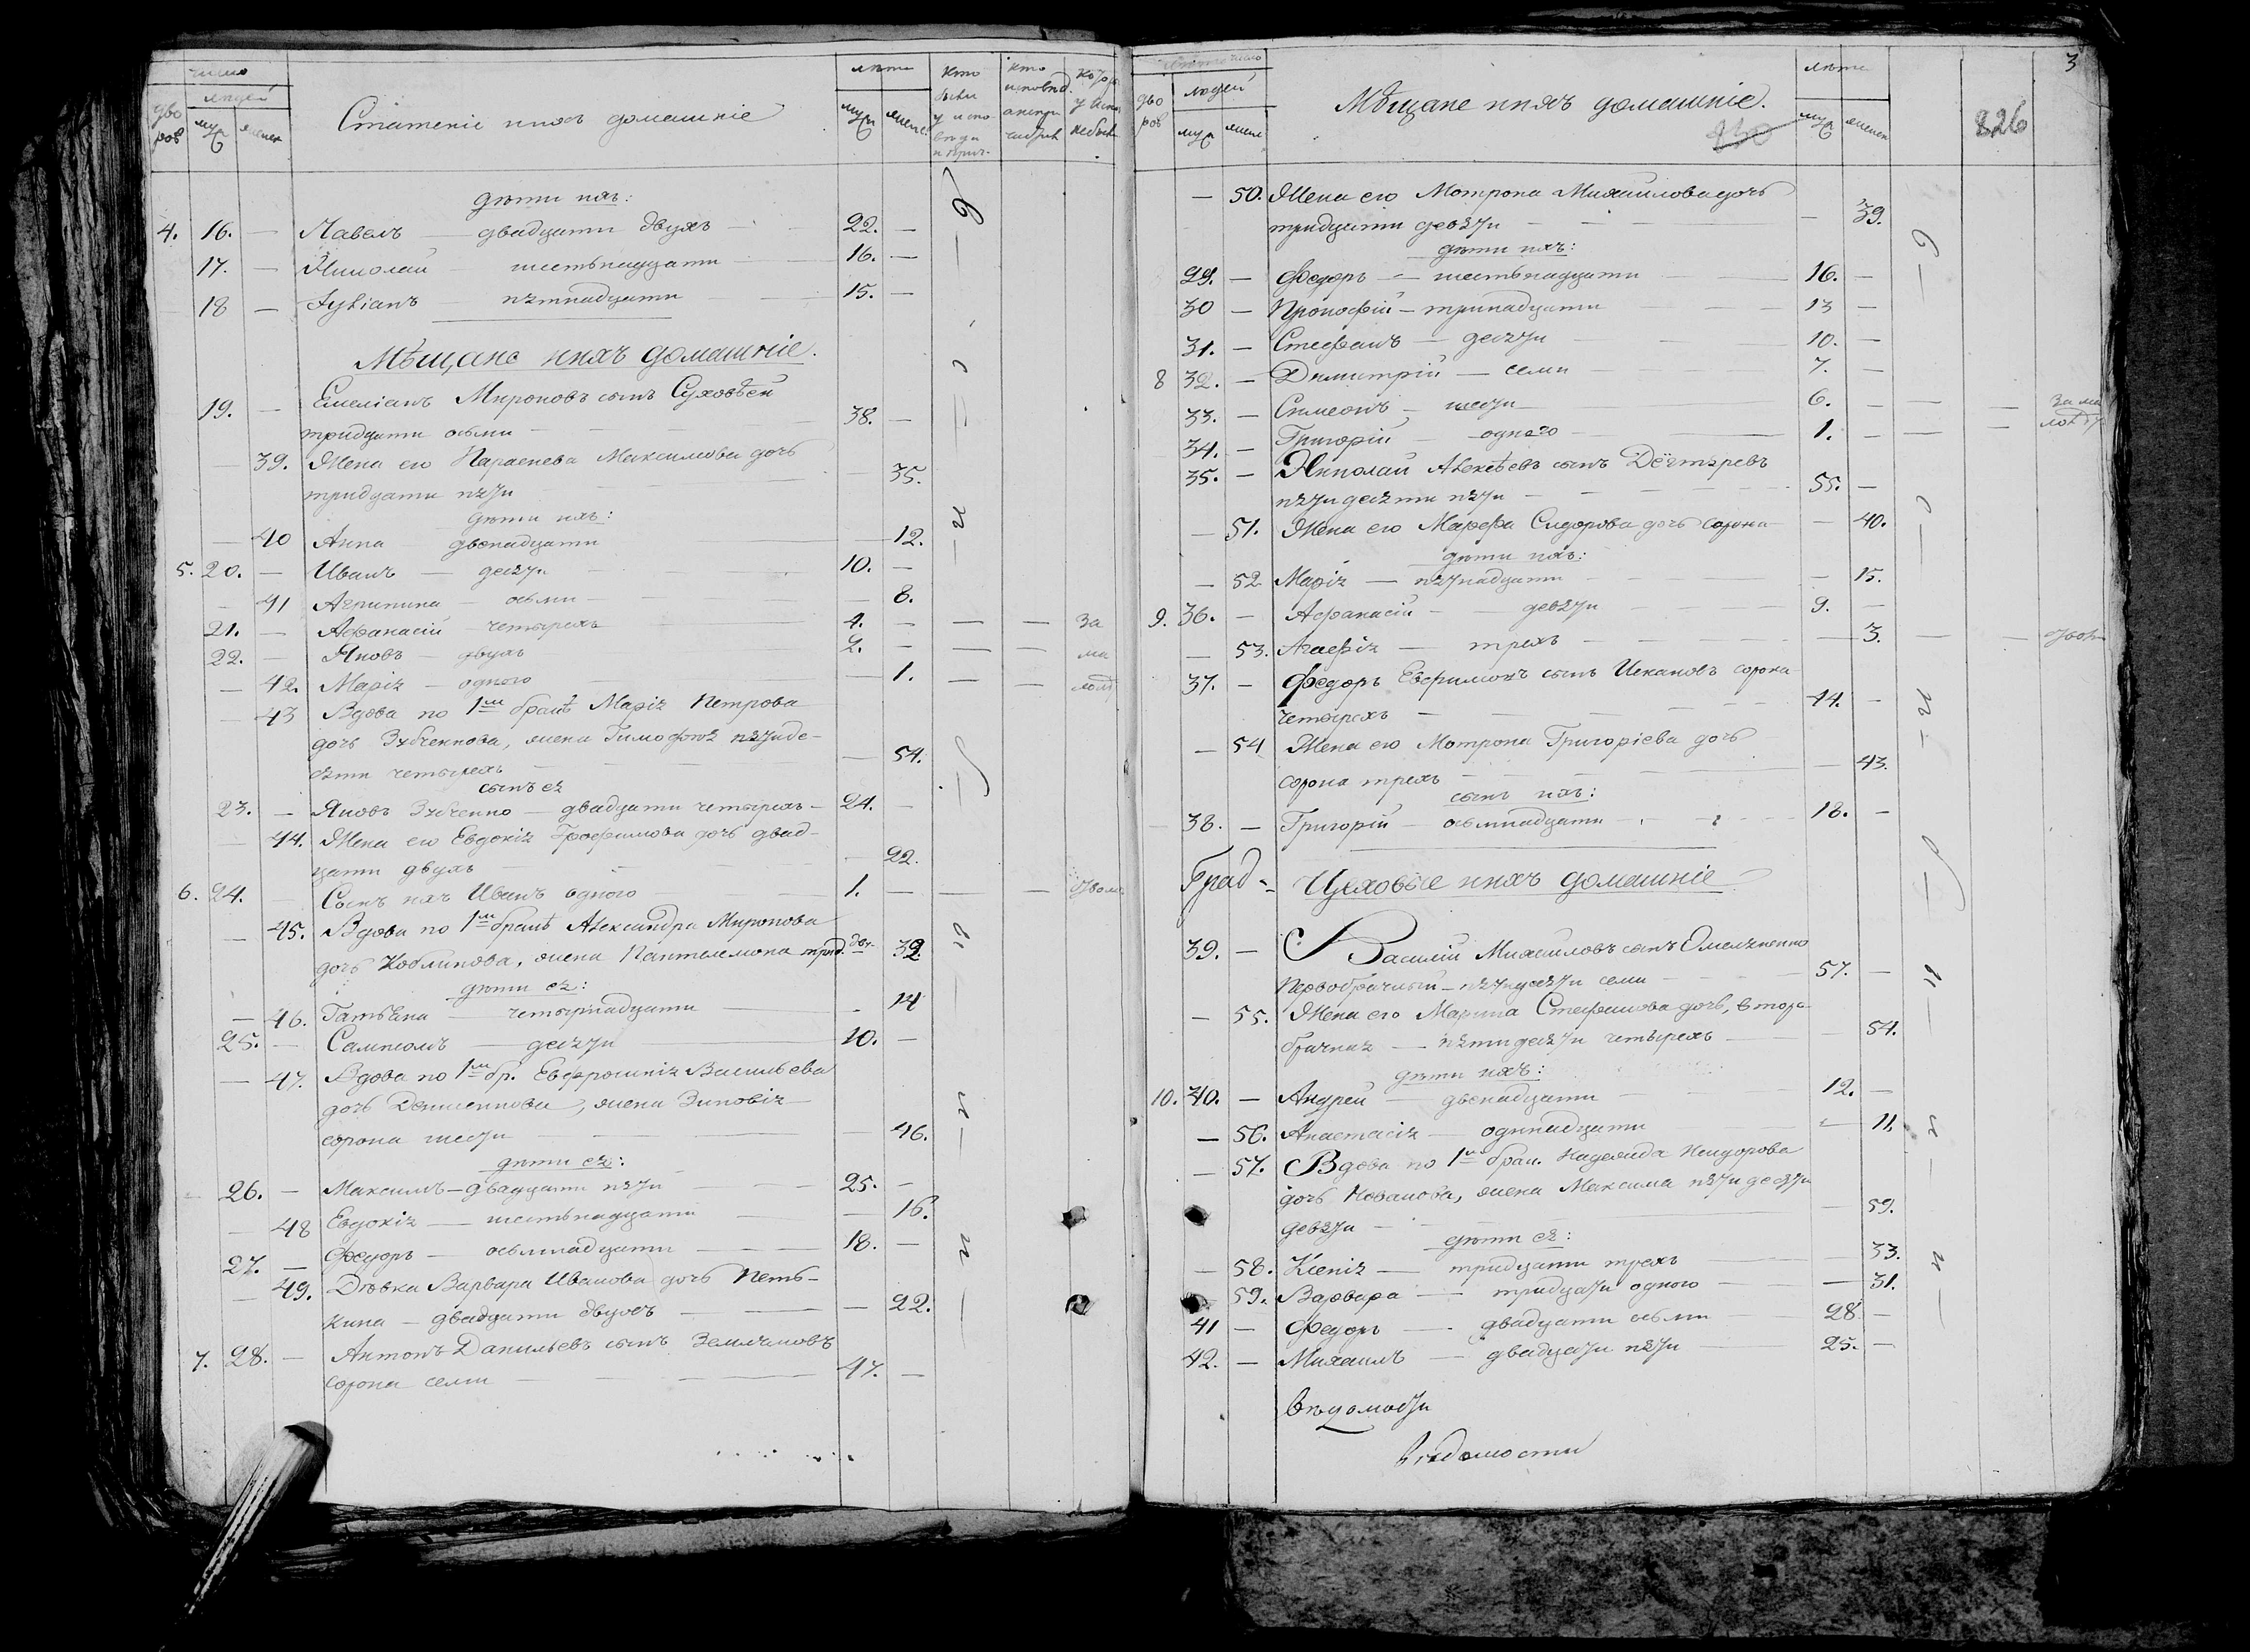 число
людей
дво
ровъ
муж
женск
Статскіе и ихъ домашніе
лѣта
муж
женс.
кто
были
у испо-
вѣди
и прич.
дѣти ихъ:
4. 16. — Павелъ — двадцати двухъ — 22. —
17. — Николай — шестьнадцати — 16. —
18 — Іуліанъ — пятнадцати — 15. —
Мѣщане и ихъ домашніе.
19. — Емеліанъ Мироновъ сынъ Суховѣй
тридцати осьми — 38. —
— 39. Жена его Параскева Максимова дочь
тридцати пяти — 35.
дѣти ихъ:
— 40 Анна — двенадцати — 12.
5. 20. — Иванъ — десяти — 10. —
— 41 Агрипина — осьми — 8.
21. — Афанасій — четырехъ — 4. — — — За
22. — Яковъ — двухъ — 2. — — — ма
— 42. Марія — одного — 1. — — лолѣт
— 43 Вдова по 1мъ бракѣ Марія Петрова
дочь Зубченкова, жена Тимофея пятиде-
сяти четырехъ — 54.
сынъ ея
23. — Яковъ Зубченко — двадцати четырехъ — 24. —
— 44. Жена его Евдокія Трофимова дочь двад-
цати двухъ — 22.
6. 24. Сынъ ихъ Иванъ одного 1. — — —
— 45. Вдова по 1мъ бракѣ Александра Миронова
дочь Кобликова, жена Пантелемона трид. дву- 32.
дѣти ея:
— 46. Татьяна — четырнадцати — 14
25. — Сампсонъ — десяти — 10. —
— 47. Вдова по 1мъ бр. Евфросинія Васильева
дочь Денисенкова, жена Зиновія
сорока шести — 46.
дѣти ея:
26. — Максимъ — двадцати пяти — 25. —
— 48 Евдокія — шестьнадцати — 16.
27. — Федоръ — осьмнадцати — 18. —
— 49. Дѣвка Варвара Иванова дочь Петь-
кина — двадцати двухъ — 22.
7. 28. — Антонъ Данильевъ сынъ
сорока семи — 47. —
3
людей
дво
ровъ
муж
женс
Мѣщане и ихъ домашніе.
лѣта
муж
женск
826
— 50. Жена его Мотрона Михайлова дочь
тридцати девяти — 39.
дѣти ихъ:
29. — Федоръ — шестьнадцати — 16. —
30 — Прокофій — тринадцати — 13 —
31. — Стефанъ — десяти — 10. —
8 32. — Димитрій — семи — 7. —
33. — Симеонъ — шести — 6. — — — За ма
34. — Григорій — одного — 1. — — — лолѣт
35. — Николай Алексѣевъ сынъ Дёгтяревъ
пятидесяти пяти — 55. —
— 51. Жена его Марфа Сидорова дочь сорока — 40.
дѣти ихъ:
— 52 Марія — пятнадцати — 15.
9. 36. — Афанасій — девяти 9. —
— 53. Агафія — трехъ — 3. — —
37. — Федоръ Евфимовъ сынъ сорока
четырехъ — 44. —
— 54 Жена его Мотрона Григоріева дочь
сорока трехъ — 43.
сынъ ихъ:
38. — Григорій — осьмнадцати — 18. —
Град- Цеховые и ихъ домашніе
39. — Василій Михайловъ сынъ Омельченко
первобрачный — пятидесяти семи — 57. —
— 55. Жена его Марина Стефанова дочь, второ-
брачная — пятидесяти четырехъ — 54.
дѣти ихъ:
10. 40. — Андрей — двенадцати — 12. —
— 56. Анастасія — одинадцати — 11.
— 57. Вдова по 1мъ брак. Надежда
дочь Новакова, жена Максима пятидесяти
девяти — 59.
дѣти ея:
— 58. Ксенія — тридцати трехъ — 33.
— 59. Варвара — тридцати одного — 31.
41 — Федоръ — двадцати осьми 28 —
42. — Михаилъ — двадцати пяти — 25. —
Вѣдомости
Вѣдомости